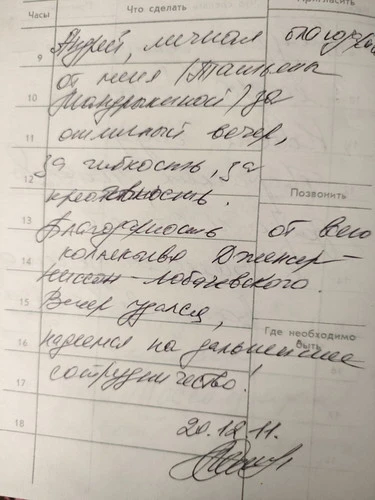 Часы
Что сделать
Пригласить
9 Андрей, личная благодар
от меня (Татьяны
10
Мандрыкиной) за
11 отличный вечер,
12 за гибкость, за
креативность.
Позвонить
13 Благодарность от всего
14 коллектива Дженсер-
Ниссан-Лобачевского.
15 Вечер удался,
Где необходимо быть
16 надеемся на дальнейшее
17 сотрудничество!
18 20.12.11.